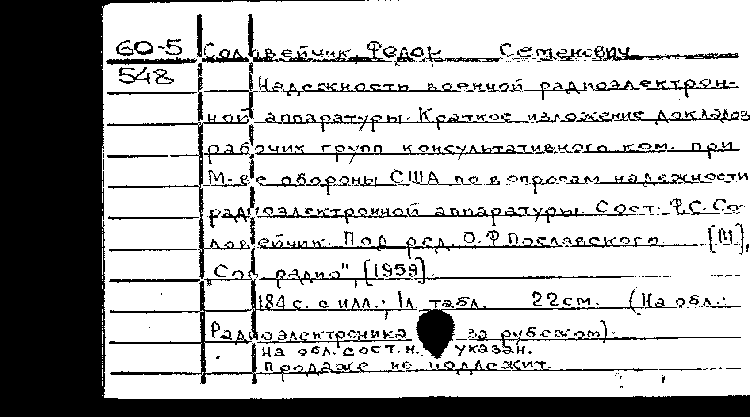 60-5 Соловейчик, Федор Семенович
548
Надежности военной радиоэлектрон-
ной аппаратуры. Краткое изложение докладов
рабочих групп консультативного ком. при
М-ве обороны США по вопросам надежности
радиоэлектронной аппаратуры. Сост. Ф.С. Со-
ловейчик. Под ред. О.Ф. Пославского [М],
"Сов. радио", [1959].
184 с. с илл.; 1 л. табл. 22 см. (На обл.:
Радиоэлектроника за рубежом).
На обл. сост. н. указан.
Продаже не подлежит.